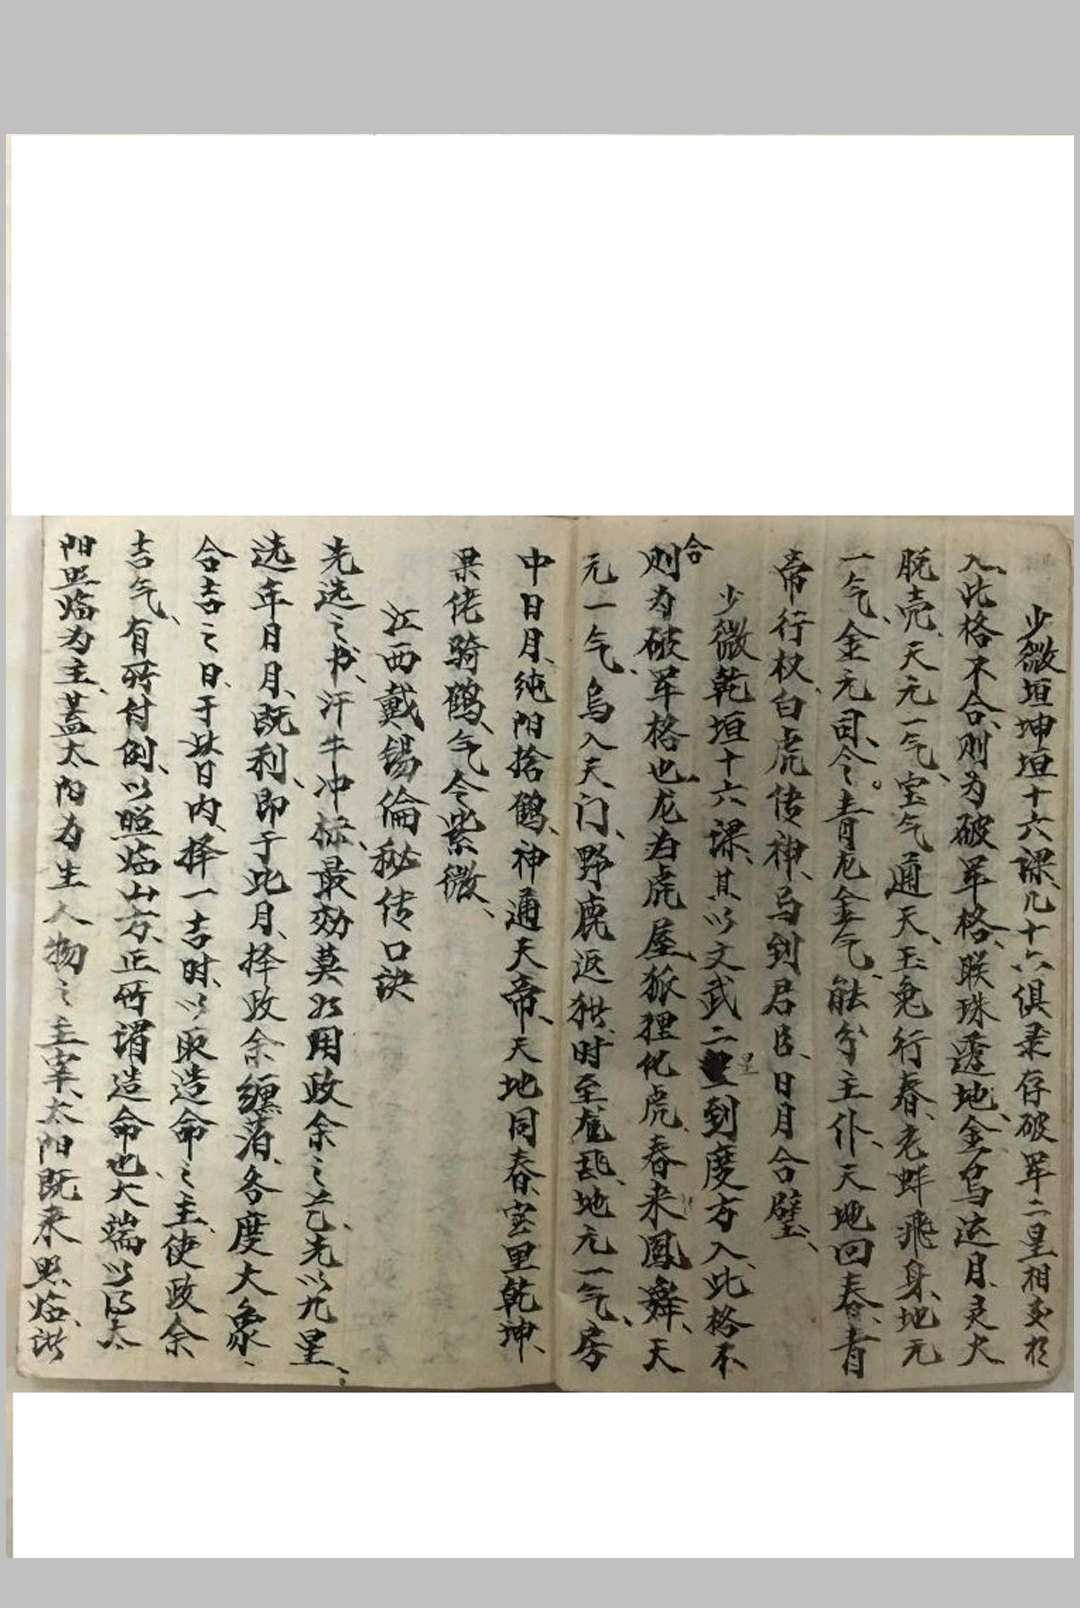 少微垣坤垣十六课、凡十六俱录存破军二星相交於
入此格不合、则为破军格、联珠透地、金乌运月、灵犬
脱壳、天元一气、宝气通天、玉兔行春、老蚌飛身、地元
一气、金元司令。青龙金气、能分主仆、天地回春、青
帝行权、白虎传神、乌到君臣、日月合璧、
少微乾垣十六课、其以文武二星到度方入、此格不合
则为破军格也、龙为虎屋、狐狸化虎、春来鳳舞、天
元一气、乌入天门、野鹿返，时至，地元一气、房
中日月、纯阳捨鶴、神通天帝、天地同春、室里乾坤、
果佬骑鹤、气令紫微、
江西戴锡倫秘传口诀
先选之书、汗牛冲标、最効莫如用政余之艺、先以九星、
选年日月、既利、即于此月、择政余缠落、各度大象、
合吉之日、于此日内、择一吉时、以取造命之主、使政余
吉气、有所付例、以照临山方、正所谓造命也、大端以得太
阳照临为主、蓋太阳为生人物之主宰、太阳既来照临、诸